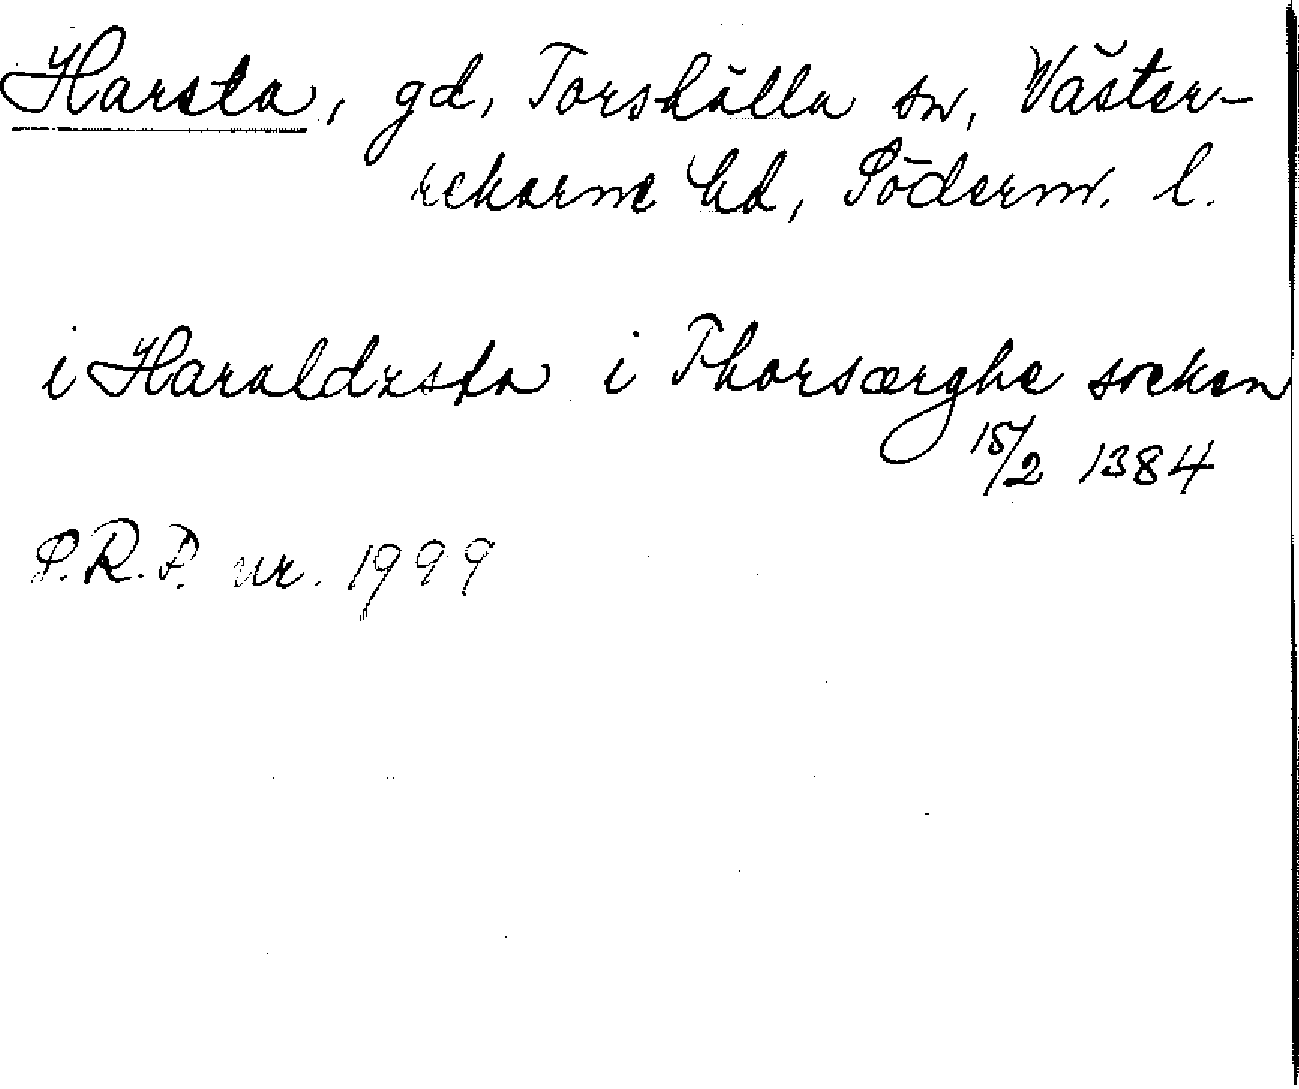 Harsta, gd, Torshälla sn, Väster-
rekarne hd, Söderm. l.
i Haraldzsta i Thorsærghe soken
15/2 1384
S.R.P. nr. 1999